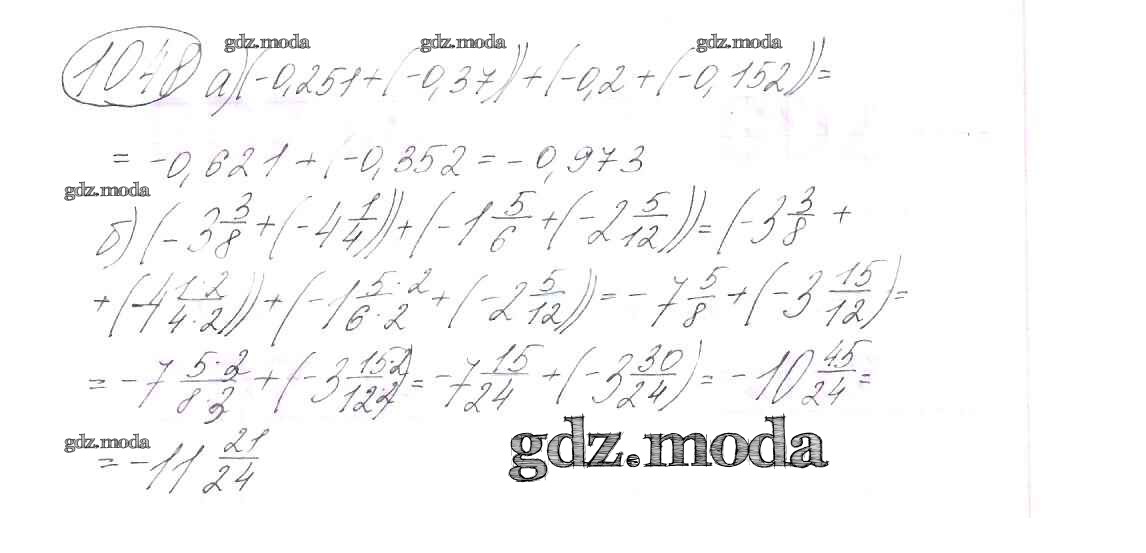 gdz.moda gdz.moda gdz.moda
1048 а) (-0,251 + (-0,37)) + (-0,2 + (-0,152)) =
= -0,621 + (-0,352 = -0,973
gdz.moda
б) (-3 3/8 + (-4 1/4)) + (-1 5/6 + (-2 5/12)) = (-3 3/8 +
+ (-4 1·2/4·2)) + (-1 5·2/6·2 + (-2 5/12)) = -7 5/8 + (-3 15/12) =
= -7 5·3/8·3 + (-3 15·2/12·2) = -7 15/24 + (-3 30/24) = -10 45/24 =
gdz.moda
= -11 21/24
gdz.moda